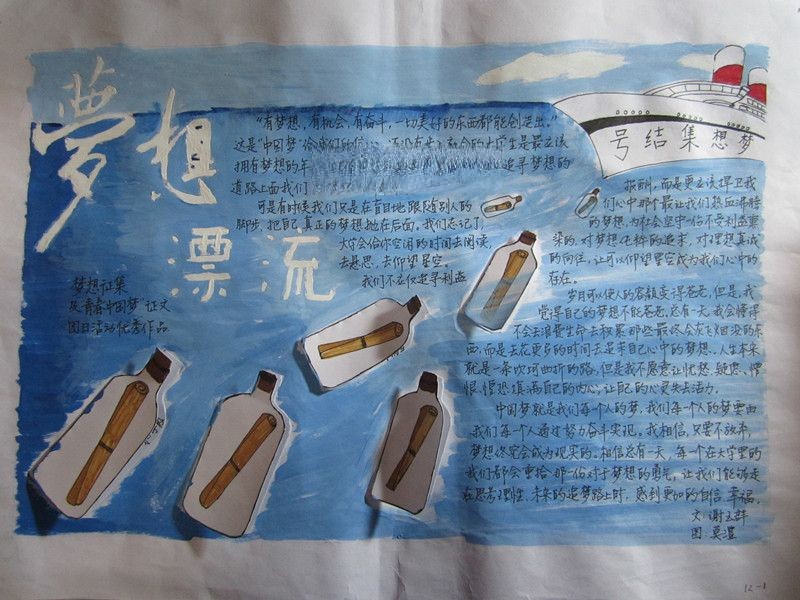 夢想
漂流
号结集想梦
"有梦想,有机会,有奋斗,一切美好的东西都能创造出。"
这是"中国梦"给我们的信心。
的大学生是最应该
拥有梦想的年
追寻梦想的
道路上面我们
可是有时候我们只是在盲目地跟随别人的
脚步,把自己真正的梦想抛在后面,我们忘记了,
大学会给你空闲的时间去阅读,
去悬思,去仰望星空。
我们不应仅追寻利益
报酬,而是更应该捍卫我
们心中那个最让我们热血沸腾
的梦想,为社会坚守一份不受利益熏
染的,对梦想纯粹的追求,对理想真诚
的向往,让可以仰望星空成为我们心中的
存在。
岁月可以使人的容颜变得苍老,但是,我
觉得自己的梦想不能苍老,总有一天,我会懂得
不会去浪费生命去积累那些最终会灰飞烟没的东
西,而是去花更多的时间去追求自己心中的梦想。人生本来
就是一条坎坷曲折的路,但是我不愿意让忧愁、疑虑、憎
恨、惶恐填满自己的内心,让自己的心更失去活力。
中国梦就是我们每个人的梦,我们每个人的梦要由
我们每个人通过努力奋斗实现。我相信,只要不放弃,
梦想终究会成为现实的。相信总有一天,每个在大学里的
我们都会重拾那一份对于梦想的勇气,让我们能够走
在思考理性、未来的追梦路上时,感到更加的自信、幸福。
文:谢玉群
图:莫湿
梦想征集
及"青春中国梦"征文
团日活动优秀作品
12-1